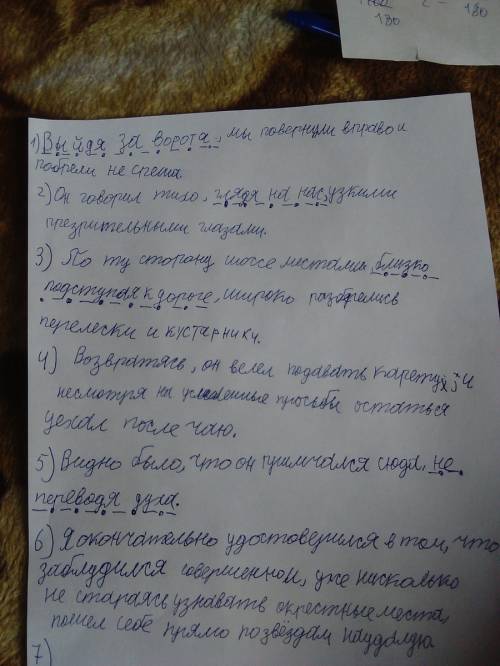 180
2 - 180
1) Выйдя за ворота, мы повернули вправо и
побрели не спеша.
2) Он говорил тихо, глядя на нас узкими
презрительными глазами.
3) По ту сторону шоссе местами, близко
подступая к дороге, широко разбрелись
перелески и кустарники.
4) Возвратясь, он велел подавать карету и
несмотря на усиленные просьбы остаться
уехал после чаю.
5) Видно было, что он примчался сюда, не
переводя духа.
6) Я окончательно удостоверился в том, что
заблудился совершенно и, уже нисколько
не стараясь узнавать окрестные места,
пошел себе прямо по звёздам наудалую
7)